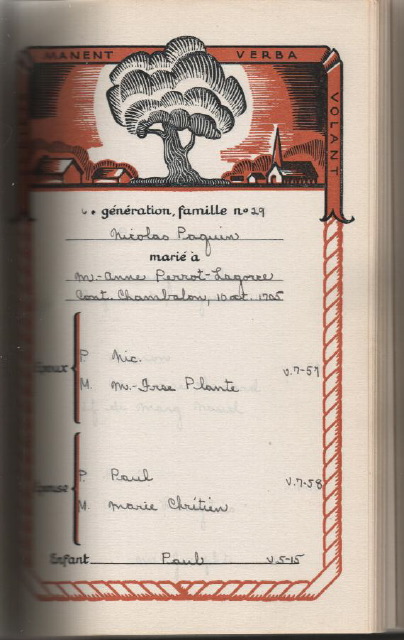 MANENT VERBA
VOLANT
6e génération, famille no 29
Nicolas Paquin
marié à
M.-Anne Perrot-Lagorce
Cont. Chambalon, 10 oct. 1705
Époux
P. Nic. V. 7-57
M. M.-Frse Plante
Épouse
P. Paul V. 7-58
M. Marie Chrétien
Enfant Paul V. 5-15